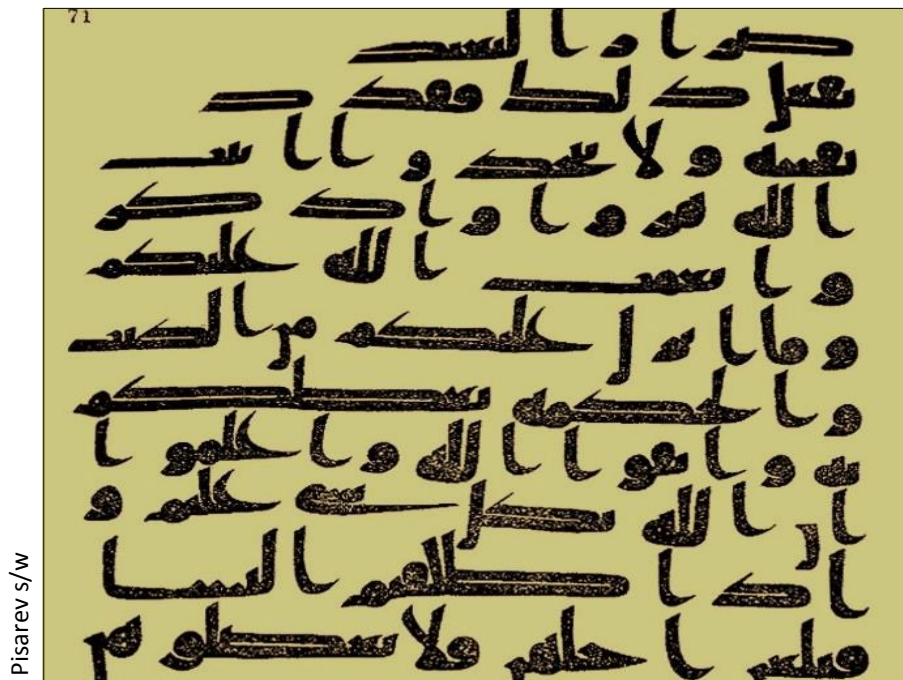 71
ضرارا لتعتد
يفعل ذلك فقد
نفسه ولا تتخذوا ايت
الله هزوا واذكر
وا نعمت الله عليكم
وما انزل عليكم من الكتب
والحكمه يعظكم
به واتقوا الله واعلموا
ان الله بكل شى عليم و
اذا طلقتم النسا
فبلغن اجلهن ولا تعضلو هن
Pisarev s/w